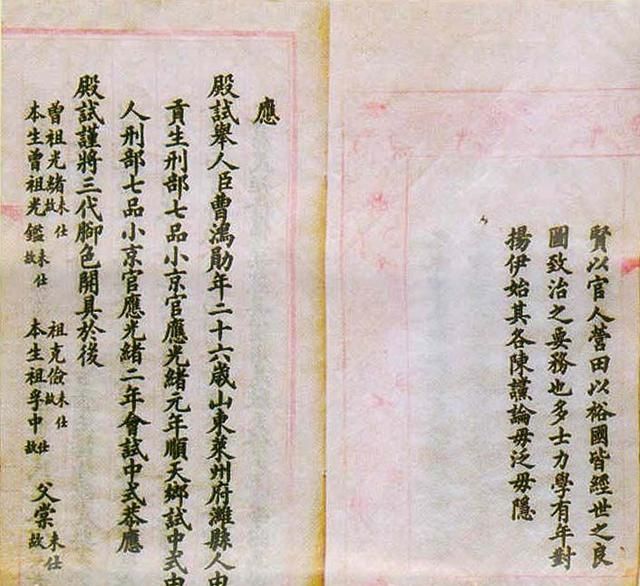 賢以官人營田以裕國皆經世之良
圖致治之要務也多士力學有年對
揚伊始其各陳讜論毋泛毋隱
應
殿試舉人臣曹鴻勛年二十六歲山東萊州府濰縣人由
貢生刑部七品小京官應光緒元年順天鄉試中式由
人刑部七品小京官應光緒二年會試中式恭應
殿試謹將三代腳色開具於後
曾祖光緒未仕故 祖克儉未仕故 父棠未仕故
本生曾祖光鑑未仕故 本生祖孚中未仕故